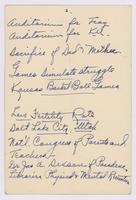 2.
Auditorium for Tray
Auditorium for K.U.
Sacrifice of Dad & Mother
Games simulate struggle
Kansas Basket Ball Games
Low Fertility Rate
Salt Lake City Utah
Nat'l Congress of Parents and
Teachers
Dr Jos A. Sexson of Pasadena
Libraries Physical & Mental